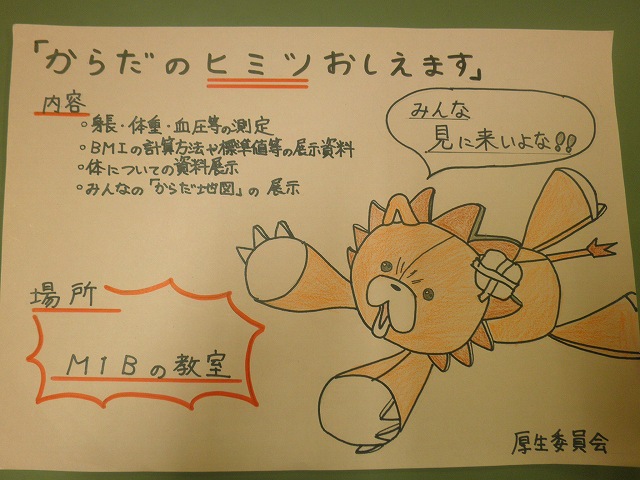 「からだのヒミツおしえます」
内容
○身長・体重・血圧等の測定
○BMIの計算方法や標準値等の展示資料
○体についての資料展示
○みんなの「からだ地図」の展示
みんな
見に来いよな!!
場所
M1Bの教室
厚生委員会